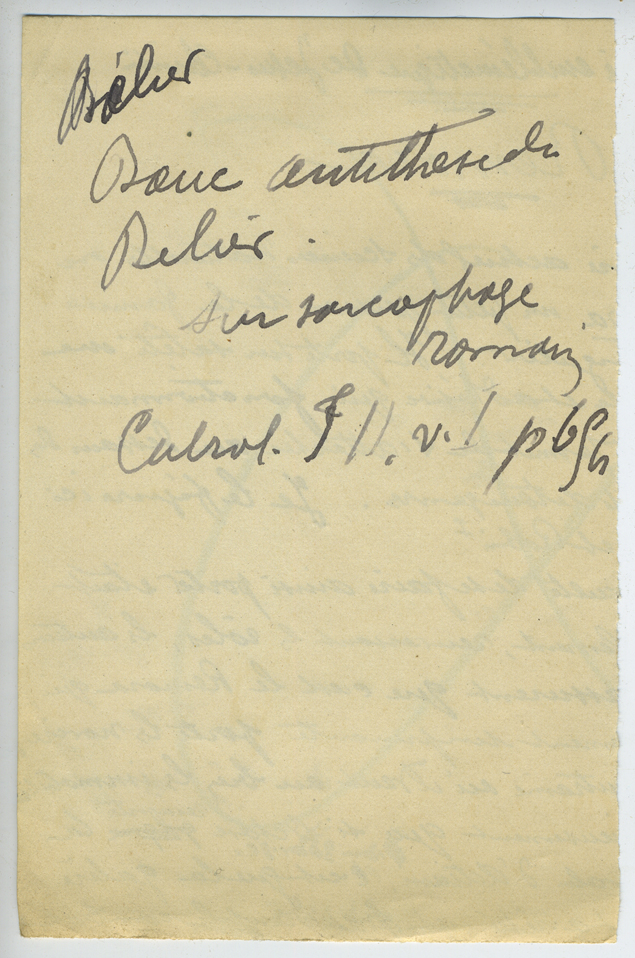 Bélier
Bouc antithèse du
Bélier.
sur sarcophage
romain
Cabrol. T II, v. I p 656